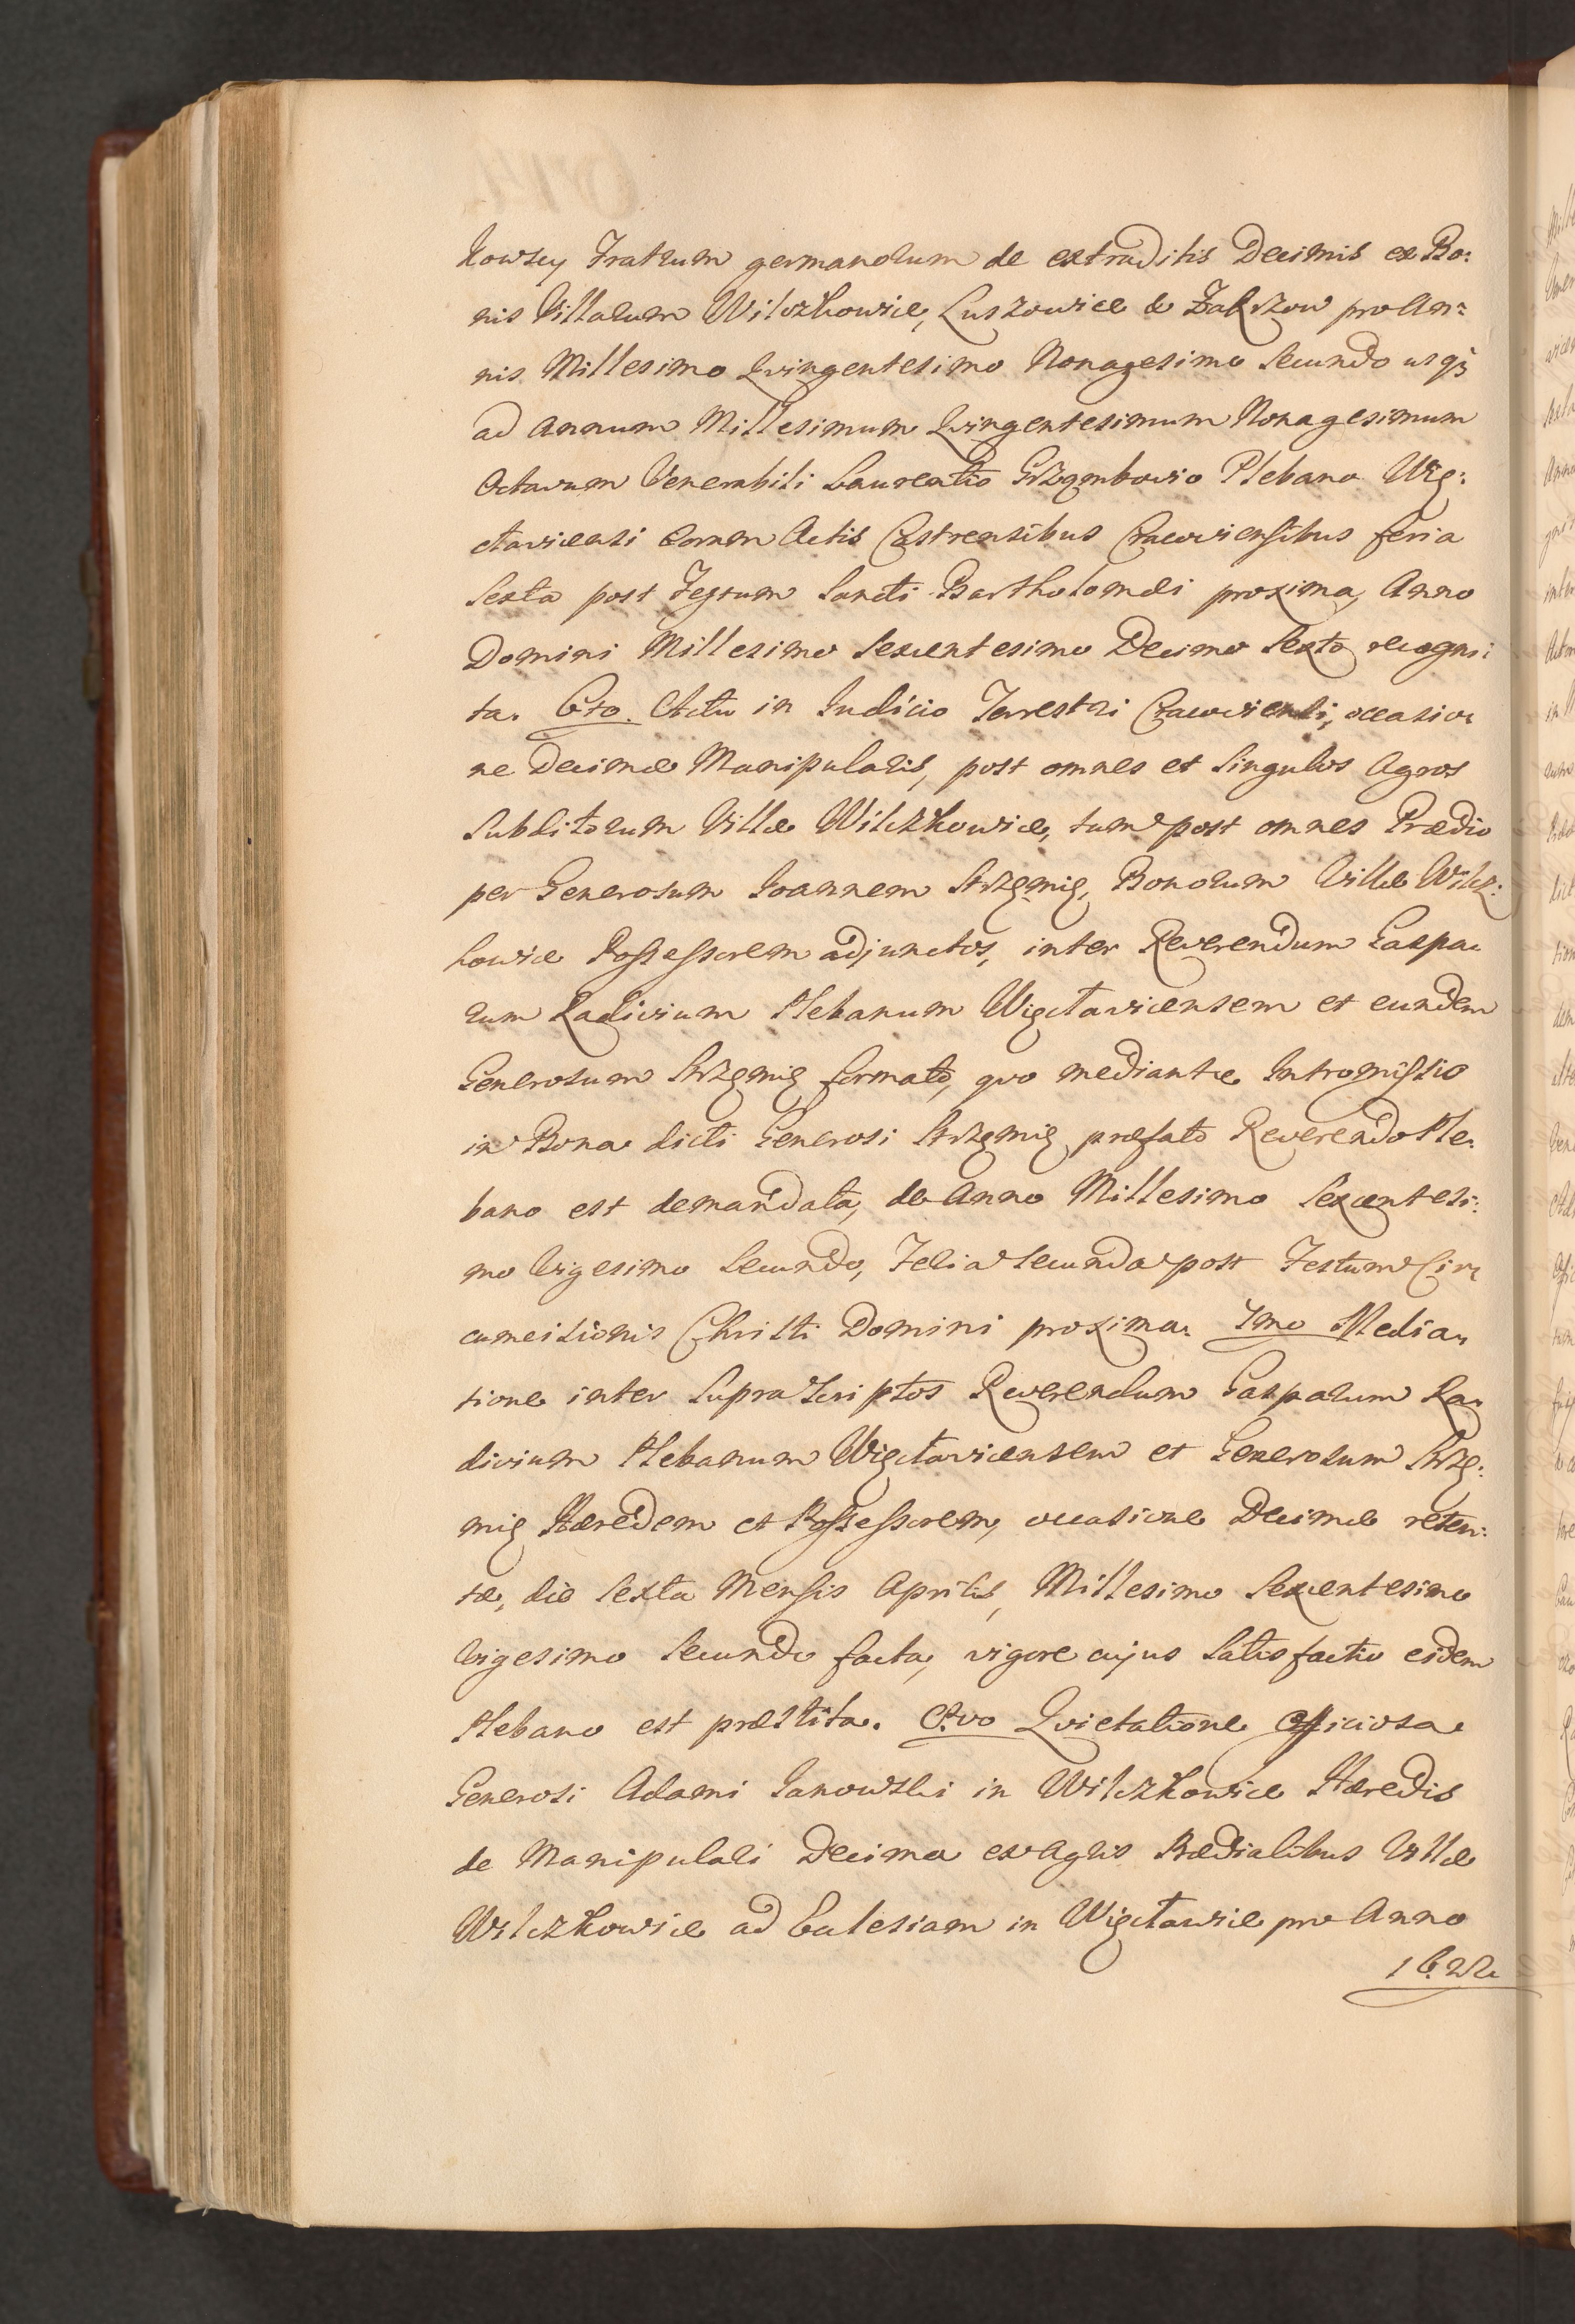 kowscy Fratrum germanorum de extraditis Decimis ex Bo:
nis Villarum Wilczkowice, Luszowice & Zakrzow pro An:
nis Millesimo Qvingentesimo Nonagesimo Secundo usq3
ad Annum Millesimum Qvingentesimum Nonagesimum
Octavum Venerabili Laurentio Grzembowio Plebano Wię:
ctavicensi coram Actis Castrensibus Cracoviensibus feria
Sexta post Festum Sancti Bartholomæi proxima, Anno
Domini Millesimo Sexcentesimo Decimo Sexto recogni:
ta. 6to. Actu in Iudicio Terrestri Cracoviensi, occasio:
ne Decimæ Manipularis, post omnes et Singulos Agros
Subditorum Villæ Wilczkowice, tum post omnes Prædio
per Generosum Ioannem Strzęmię, Bonorum Villæ Wilcz:
kowice Possessorem adjunctos, inter Reverendum Gaspa:
rum Radivium Plebanum Więctavicensem et eundem
Generosum Strzęmię formato, qvo mediante Intromissio
in Bona dicti Generosi Strzęmię præfato Reverendo Ple:
bano est demandata, de Anno Millesimo Sexcentesi:
mo Vigesimo Secundo, Feria Secunda post Festum Cir:
cumcisionis Christi Domini proxima. 7mo Media:
tione inter Supra Scriptos Reverendum Gasparum Ra:
divium Plebanum Więctavicensem et Generosum Strzę:
mię Hæredem et Possessorem, occasione Decimæ reten:
tæ, die Sexta Mensis Aprilis, Millesimo Sexcentesimo
Vigesimo Secundo facta, vigore cujus Satisfactio eidem
Plebano est præstita. 8vo Qvietatione Officiosa
Generosi Adami Ianowski in Wilczkowice Hæredis
de Manipulari Decima ex Agris Prædialibus Villæ
Wilczkowice ad Ecclesiam in Więctawice pro Anno